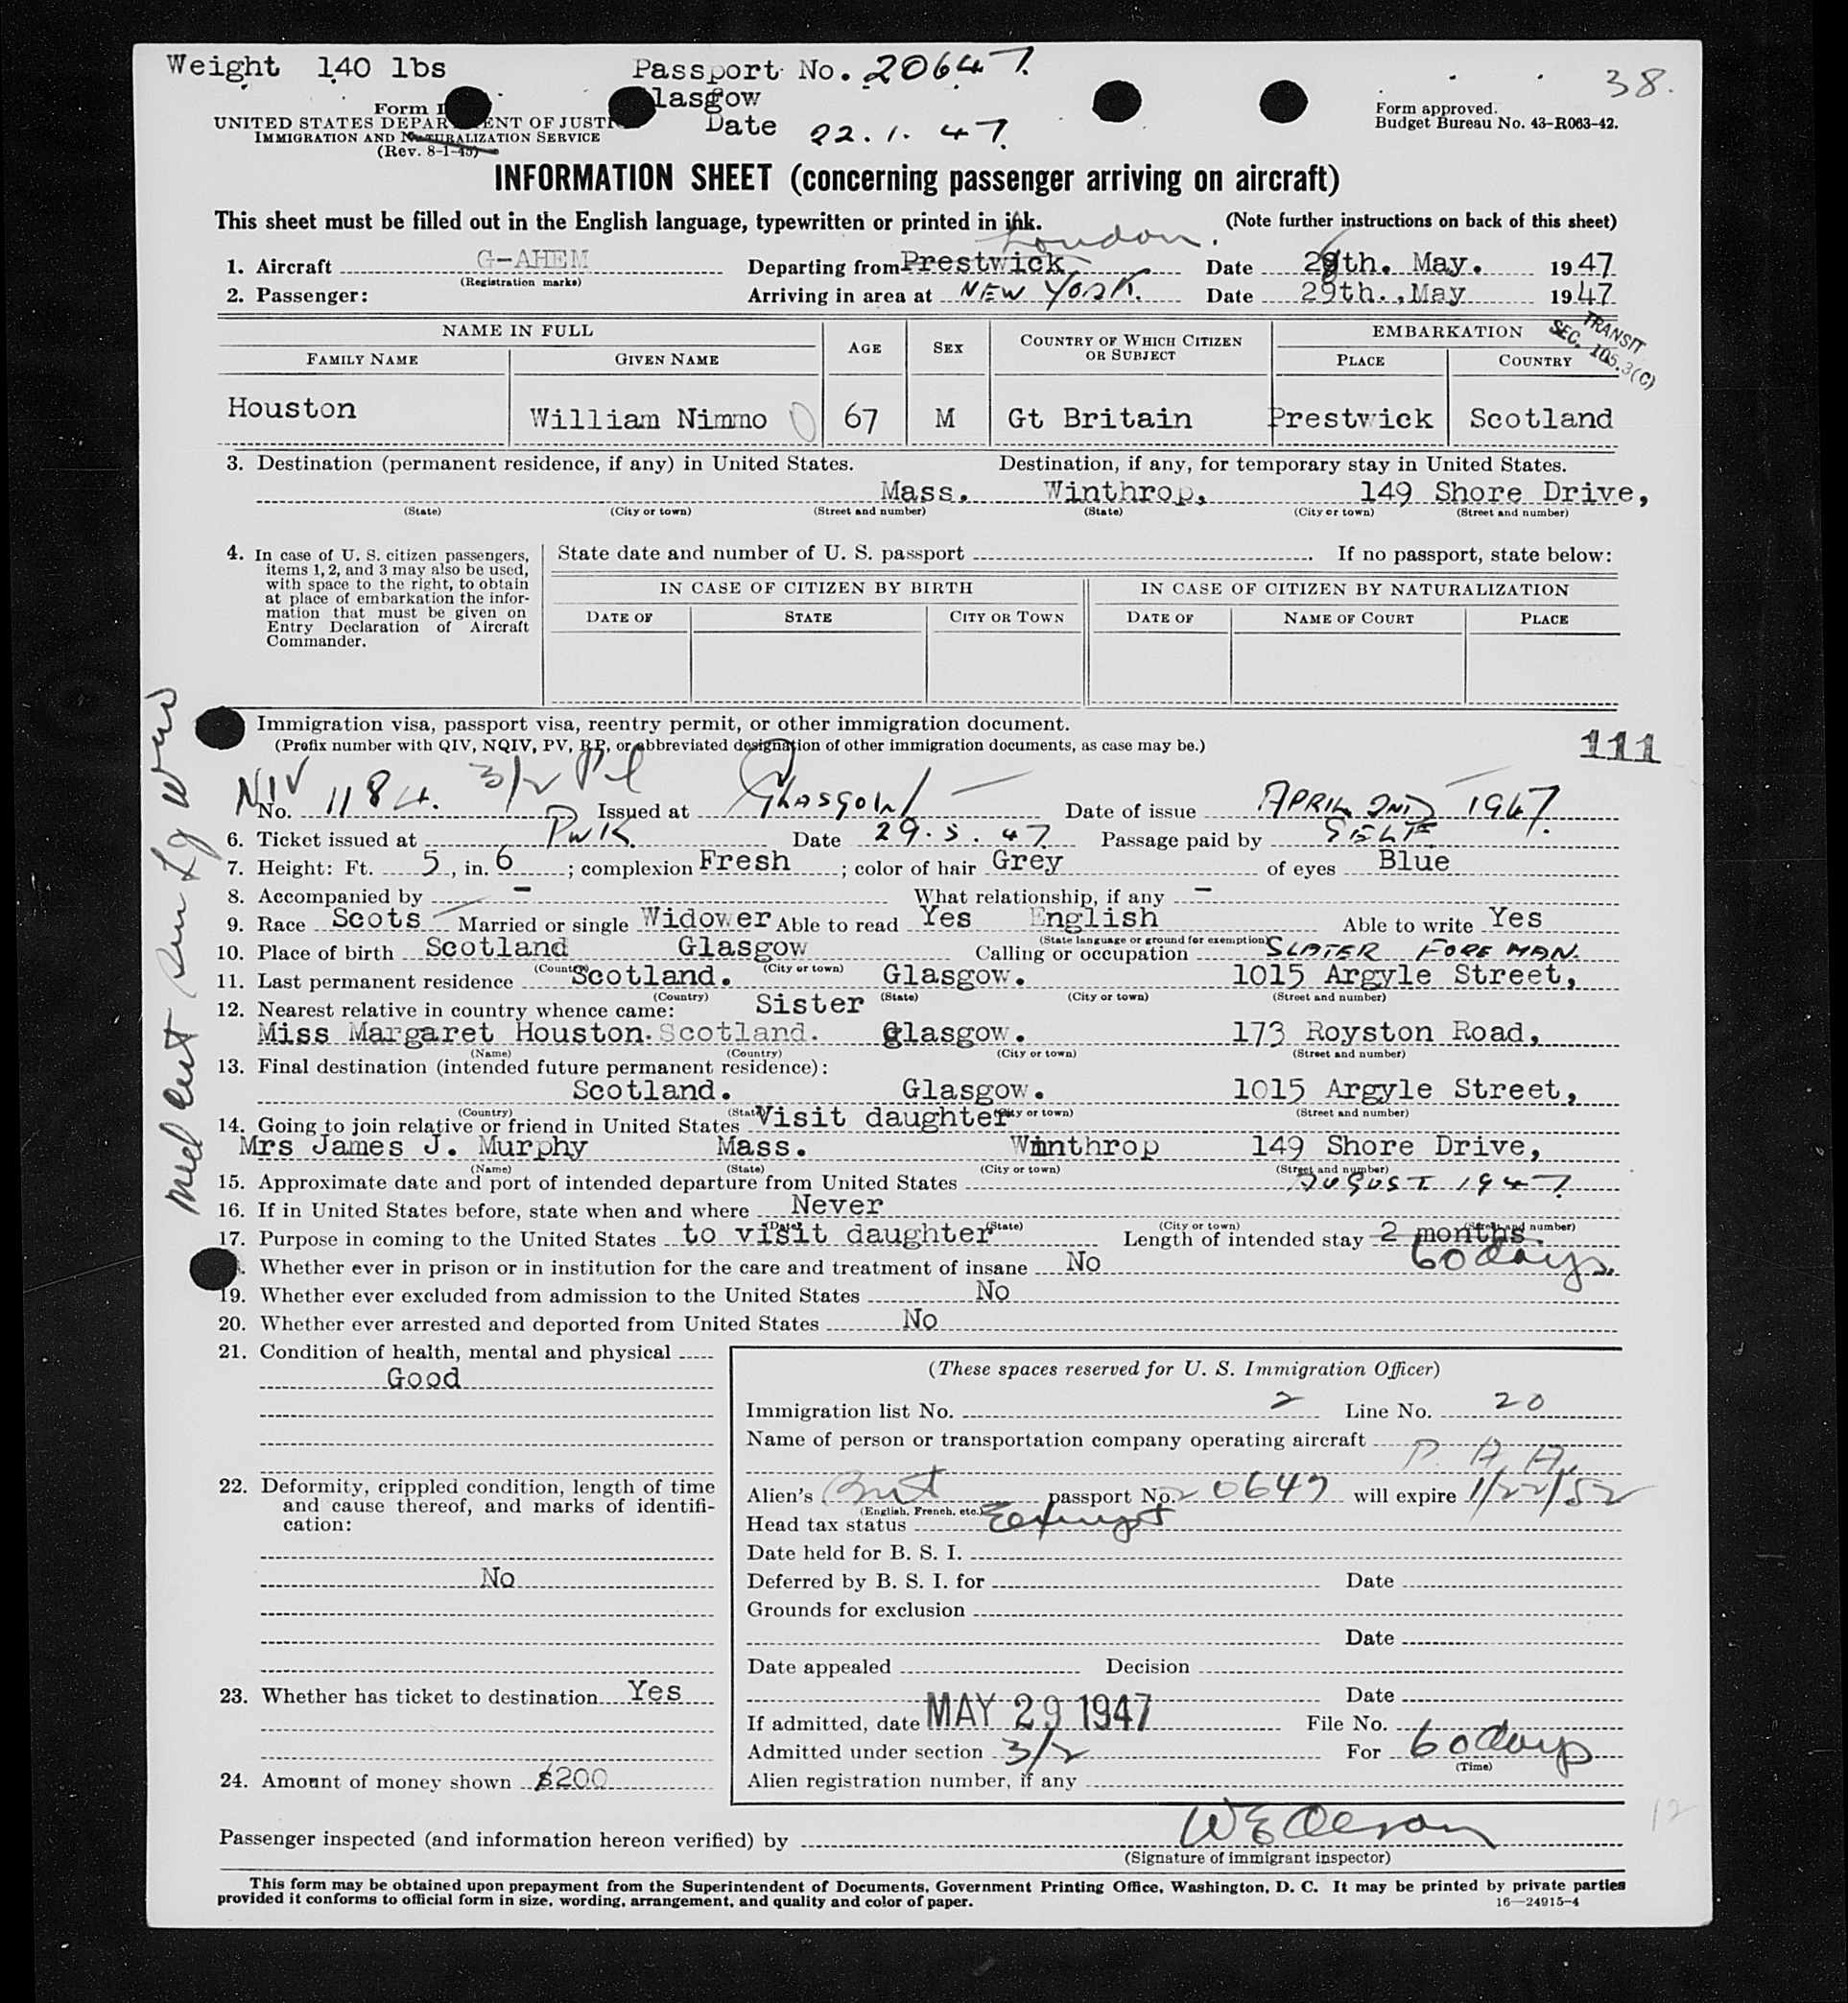 Weight 140 lbs Passport No. 20647. 38.
lasgow
Form I
Form approved.
UNITED STATES DEPARTMENT OF JUSTICE Date 22.1.47.
Budget Bureau No. 43-R063-42.
IMMIGRATION AND NATURALIZATION SERVICE
(Rev. 8-1-45)
INFORMATION SHEET (concerning passenger arriving on aircraft)
This sheet must be filled out in the English language, typewritten or printed in ink. (Note further instructions on back of this sheet)
London.
1. Aircraft G-AHEM Departing from Prestwick Date 28th. May. 1947
(Registration marks)
2. Passenger: Arriving in area at NEW YORK. Date 29th. May 1947
TRANSIT
SEC. 105.3(C)
NAME IN FULL AGE SEX COUNTRY OF WHICH CITIZEN OR SUBJECT EMBARKATION
FAMILY NAME GIVEN NAME PLACE COUNTRY
Houston William Nimmo 67 M Gt Britain Prestwick Scotland
3. Destination (permanent residence, if any) in United States. Destination, if any, for temporary stay in United States.
Mass. Winthrop, 149 Shore Drive,
(State) (City or town) (Street and number) (State) (City or town) (Street and number)
4. In case of U. S. citizen passengers, items 1, 2, and 3 may also be used, with space to the right, to obtain at place of embarkation the information that must be given on Entry Declaration of Aircraft Commander.
State date and number of U. S. passport If no passport, state below:
IN CASE OF CITIZEN BY BIRTH IN CASE OF CITIZEN BY NATURALIZATION
DATE OF STATE CITY OR TOWN DATE OF NAME OF COURT PLACE
Immigration visa, passport visa, reentry permit, or other immigration document.
(Prefix number with QIV, NQIV, PV, RP, or abbreviated designation of other immigration documents, as case may be.)
111
NIV 3/2
No. 1184. Issued at GLASGOW Date of issue APRIL 2ND 1947.
6. Ticket issued at PWK Date 29.5.47 Passage paid by SELF.
7. Height: Ft. 5, in. 6; complexion Fresh; color of hair Grey of eyes Blue
8. Accompanied by - What relationship, if any -
9. Race Scots Married or single Widower Able to read Yes English Able to write Yes
(State language or ground for exemption)
10. Place of birth Scotland Glasgow Calling or occupation SLATER FOREMAN.
(Country) (City or town)
11. Last permanent residence Scotland. Glasgow. 1015 Argyle Street,
(Country) (State) (City or town) (Street and number)
12. Nearest relative in country whence came: Sister
Miss Margaret Houston. Scotland. Glasgow. 173 Royston Road,
(Name) (Country) (City or town) (Street and number)
13. Final destination (intended future permanent residence):
Scotland. Glasgow. 1015 Argyle Street,
(Country) (State) (City or town) (Street and number)
14. Going to join relative or friend in United States Visit daughter
Mrs James J. Murphy Mass. Winthrop 149 Shore Drive,
(Name) (State) (City or town) (Street and number)
15. Approximate date and port of intended departure from United States AUGUST 1947.
16. If in United States before, state when and where Never
(Date) (State) (City or town) (Street and number)
17. Purpose in coming to the United States to visit daughter Length of intended stay 2 months.
60 days.
Whether ever in prison or in institution for the care and treatment of insane No
19. Whether ever excluded from admission to the United States No
20. Whether ever arrested and deported from United States No
21. Condition of health, mental and physical
Good
22. Deformity, crippled condition, length of time and cause thereof, and marks of identification:
No
23. Whether has ticket to destination Yes
24. Amount of money shown $200
(These spaces reserved for U. S. Immigration Officer)
Immigration list No. 2 Line No. 20
Name of person or transportation company operating aircraft
P. A. A.
Alien's Brit passport No. 20647 will expire 1/22/52
(English, French, etc.)
Head tax status Exempt
Date held for B. S. I.
Deferred by B. S. I. for Date
Grounds for exclusion
Date
Date appealed Decision
Date
If admitted, date MAY 29 1947 File No.
Admitted under section 3/2 For 60 days
(Time)
Alien registration number, if any
12
Passenger inspected (and information hereon verified) by W E Olson
(Signature of immigrant inspector)
This form may be obtained upon prepayment from the Superintendent of Documents, Government Printing Office, Washington, D. C. It may be printed by private parties
provided it conforms to official form in size, wording, arrangement, and quality and color of paper. 16—24915-4